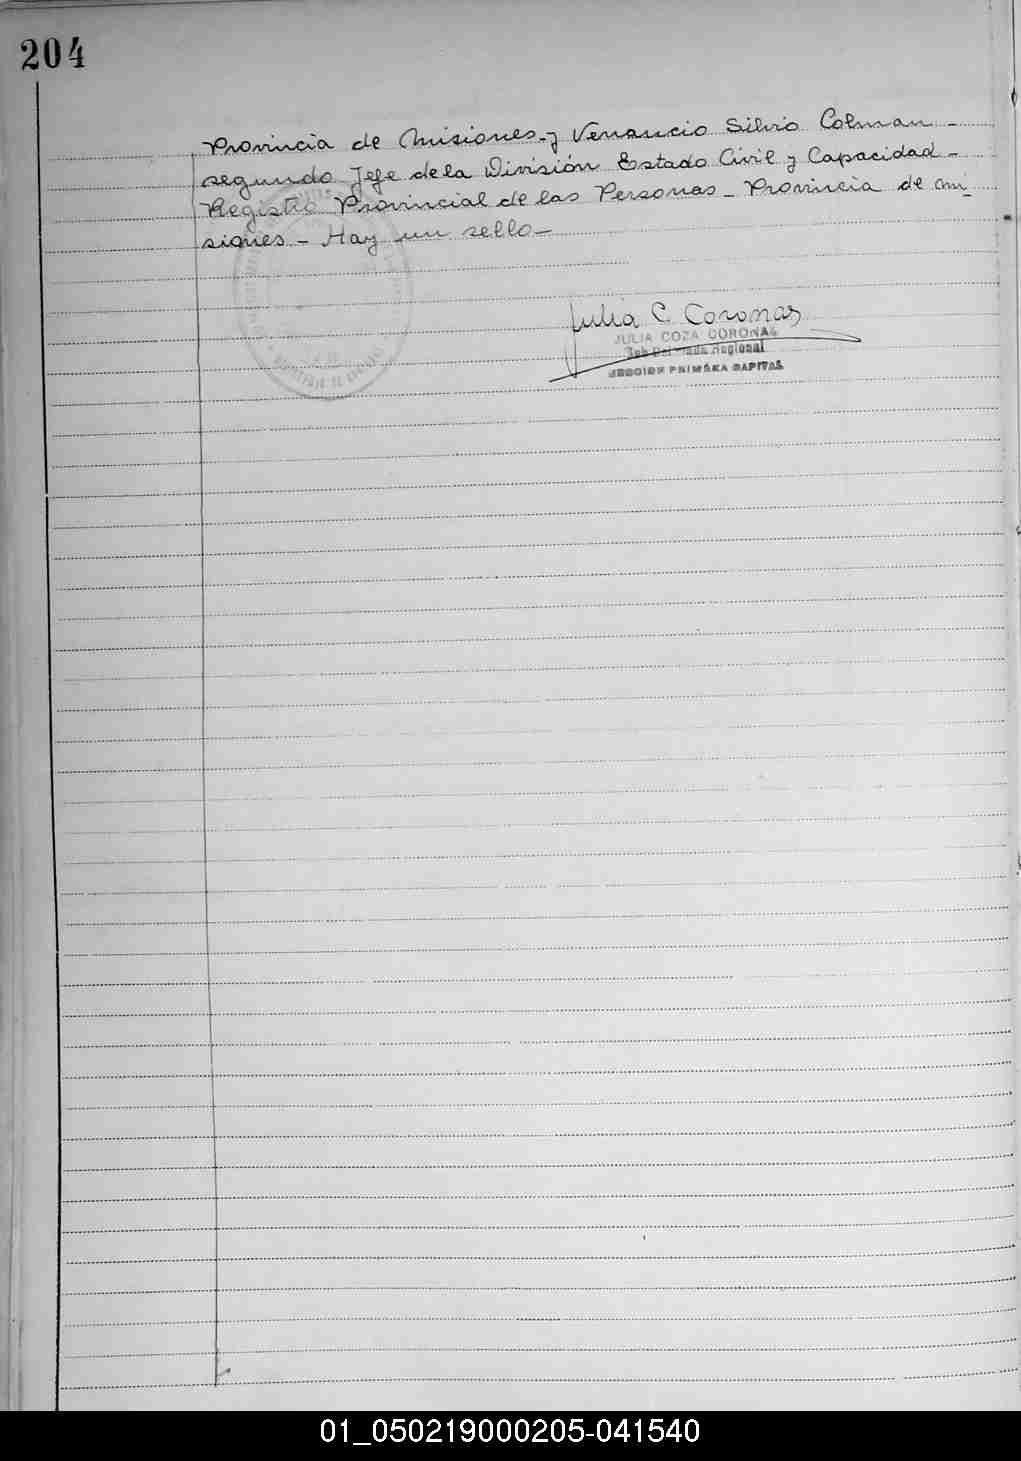 204
Provincia de Misiones - y Venancio Silvio Colman -
segundo Jefe de la División Estado Civil y Capacidad -
Registro Provincial de las Personas - Provincia de Mi_
siones - Hay un sello -
Julia C. Coronas
JULIA COZA CORONAS
Regional
SECCION PRIMERA CAPITAL
01_050219000205-041540